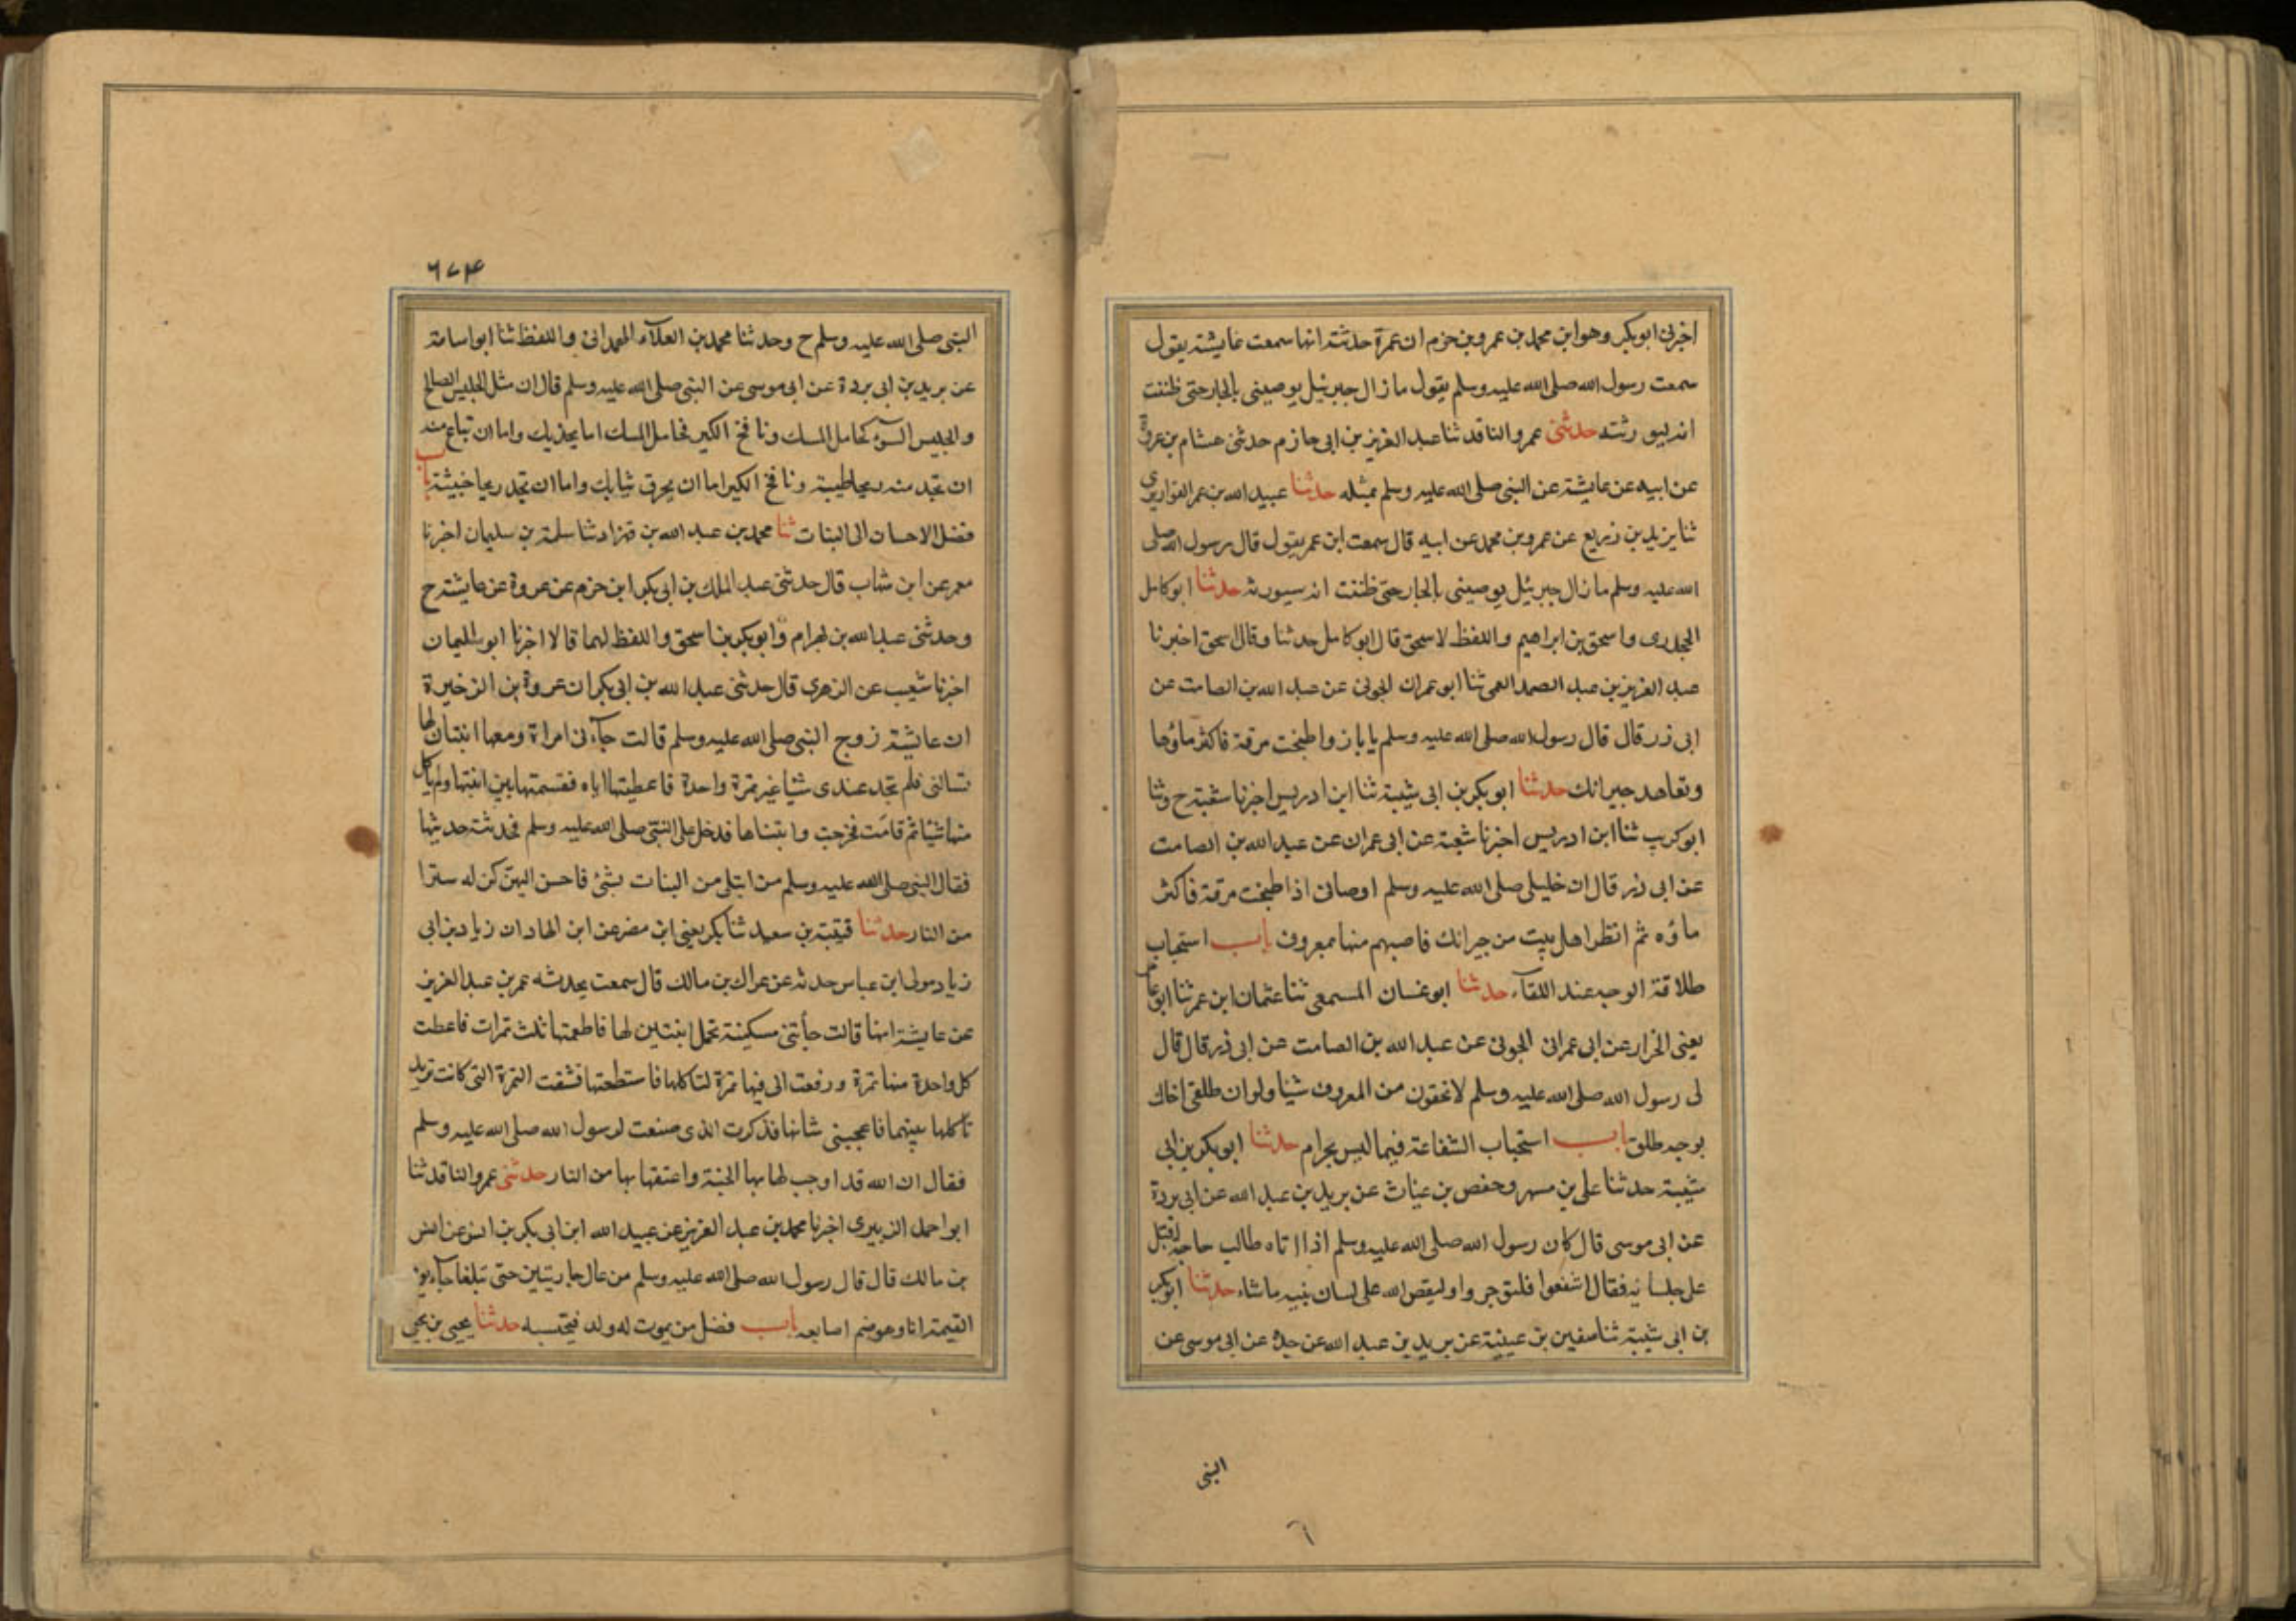 اخبرنى ابو بكر وهو ابن محمد بن عمرو بن حزم ان عمرة حدثته انها سمعت عايشة يقول
سمعت رسول الله صلى الله عليه وسلم يقول ما زال جبرئيل يوصينى بالجار حتى ظننت
انه ليورثنه حدثنى عمرو الناقد ثنا عبد العزيز بن ابى حازم حدثنى هشام بن عروة
عن ابيه عن عايشة عن النبى صلى الله عليه وسلم بمثله حدثنا عبيد الله بن عمر القواريرى
ثنا يزيد بن زريع عن عمرو بن محمد عن ابيه قال سمعت ابن عمر يقول قال رسول الله صلى
الله عليه وسلم ما زال جبرئيل يوصينى بالجار حتى ظننت انه سيورثه حدثنا ابو كامل
الجحدرى واسحق بن ابراهيم واللفظ لاسحق قال ابو كامل حدثنا وقال اسحق اخبرنا
عبد العزيز بن عبد الصمد العمى ثنا ابو عمران الجونى عن عبد الله بن الصامت عن
ابى ذر قال قال رسول الله صلى الله عليه وسلم يا باذر واطبخت مرقة فاكثر ماؤها
وتعاهد جيرانك حدثنا ابو بكر بن ابى شيبة ثنا ابن ادريس اخبرنا شعبة ح وثنا
ابو كريب ثنا ابن ادريس اخبرنا شعبة عن ابى عمران عن عبد الله بن الصامت
عن ابى ذر قال ان خليلى صلى الله عليه وسلم اوصانى اذا طبخت مرقة فاكثر
ماؤه ثم انظر اهل بيت من جيرانك فاصبهم منها بمعروف باب استحباب
طلاقة الوجه عند اللقاء حدثنا ابو غسان المسمعى ثنا عثمان ابن عمر ثنا ابو عامر
يعنى الخزار عن ابى عمرانى الجونى عن عبد الله بن الصامت عن ابى ذر قال قال
لى رسول الله صلى الله عليه وسلم لا تحقرن من المعروف شيئا ولو ان طلقى اخاك
بوجه طلق باب استحباب الشفاعة فيما ليس بحرام حدثنا ابو بكر بن ابى
شيبة حدثنا على بن مسهر وحفص بن غياث عن بريد بن عبد الله عن ابى بردة
عن ابى موسى قال كان رسول الله صلى الله عليه وسلم اذا اتاه طالب حاجة اقبل
على جلسائه فقال اشفعوا فلتؤجروا وليقض الله على لسان نبيه ما شاء حدثنا ابو بكر
بن ابى شيبة ثنا سفين بن عيينة عن بريد بن عبد الله عن جده عن ابى موسى عن
النبى
٦
٦٧٤
النبى صلى الله عليه وسلم ح وحدثنا محمد بن العلاء الهمدانى واللفظ ثنا ابو اسامة
عن بريد بن ابى بردة عن ابى موسى عن النبى صلى الله عليه وسلم قال ان مثل الجليس الصالح
والجليس السوء كحامل المسك ونافخ الكير فحامل المسك اما يحذيك واما ان تباع منه
ان تجد منه ريحا طيبة ونافخ الكير اما ان يحرق ثيابك واما ان تجد ريحا خبيثة باب
فضل الاحسان الى البنات ثنا محمد بن عبد الله بن قهزاد ثنا سلمة بن سليمان اخبرنا
معمر عن ابن شهاب قال حدثنى عبد الملك بن ابى بكر ابن حزم عن عروة عن عايشة ح
وحدثنى عبد الله بن بهرام وابو بكر بن اسحق واللفظ لهما قالا اخبرنا ابو اليمان
اخبرنا شعيب عن الزهرى قال حدثنى عبد الله بن ابى بكر ان عروة بن الزخيرة
ان عايشة زوج النبى صلى الله عليه وسلم قالت جآءنى امراة ومعها ابنتان لها
تسالنى فلم تجد عندى شيئا غير تمرة واحدة فاعطيتها اياه فقسمتها بين ابنتها ولم ياكل
منها شيئا ثم قامت فخرجت وابنتاها فدخل على النبى صلى الله عليه وسلم فحدثته حديثها
فقال النبى صلى الله عليه وسلم من ابتلى من البنات بشئ فاحسن اليهن كن له سترا
من النار حدثنا قتيبة بن سعيد ثنا بكر يعنى ابن مضر عن ابن الهاد ان زياد بن ابى
زياد مولى ابن عباس حدثه عن عراك بن مالك قال سمعت يحدثه عمر بن عبد العزيز
عن عايشة انها قالت جأتنى مسكينة تحمل ابنتين لها فاطعمتها ثلث تمرات فاعطت
كل واحدة منها تمرة ورفعت الى فيها تمرة لتاكلها فاستطعتها فشقت التمرة التى كانت تريد
تأكلها بينهما فاعجبنى شانها فذكرت الذى صنعت لرسول الله صلى الله عليه وسلم
فقال ان الله قد اوجب لها بها الجنة واعتقها بها من النار حدثنى عمرو الناقد ثنا
ابو احمد الزبيرى اخبرنا محمد بن عبد العزيز عن عبيد الله ابن ابى بكر بن انس عن انس
بن مالك قال قال رسول الله صلى الله عليه وسلم من عال جاريتين حتى تبلغا جآء يوم
القيمة انا وهو وضم اصابعه باب فضل من يموت له ولد فيحتسبه حدثنا يحيى بن يحيى